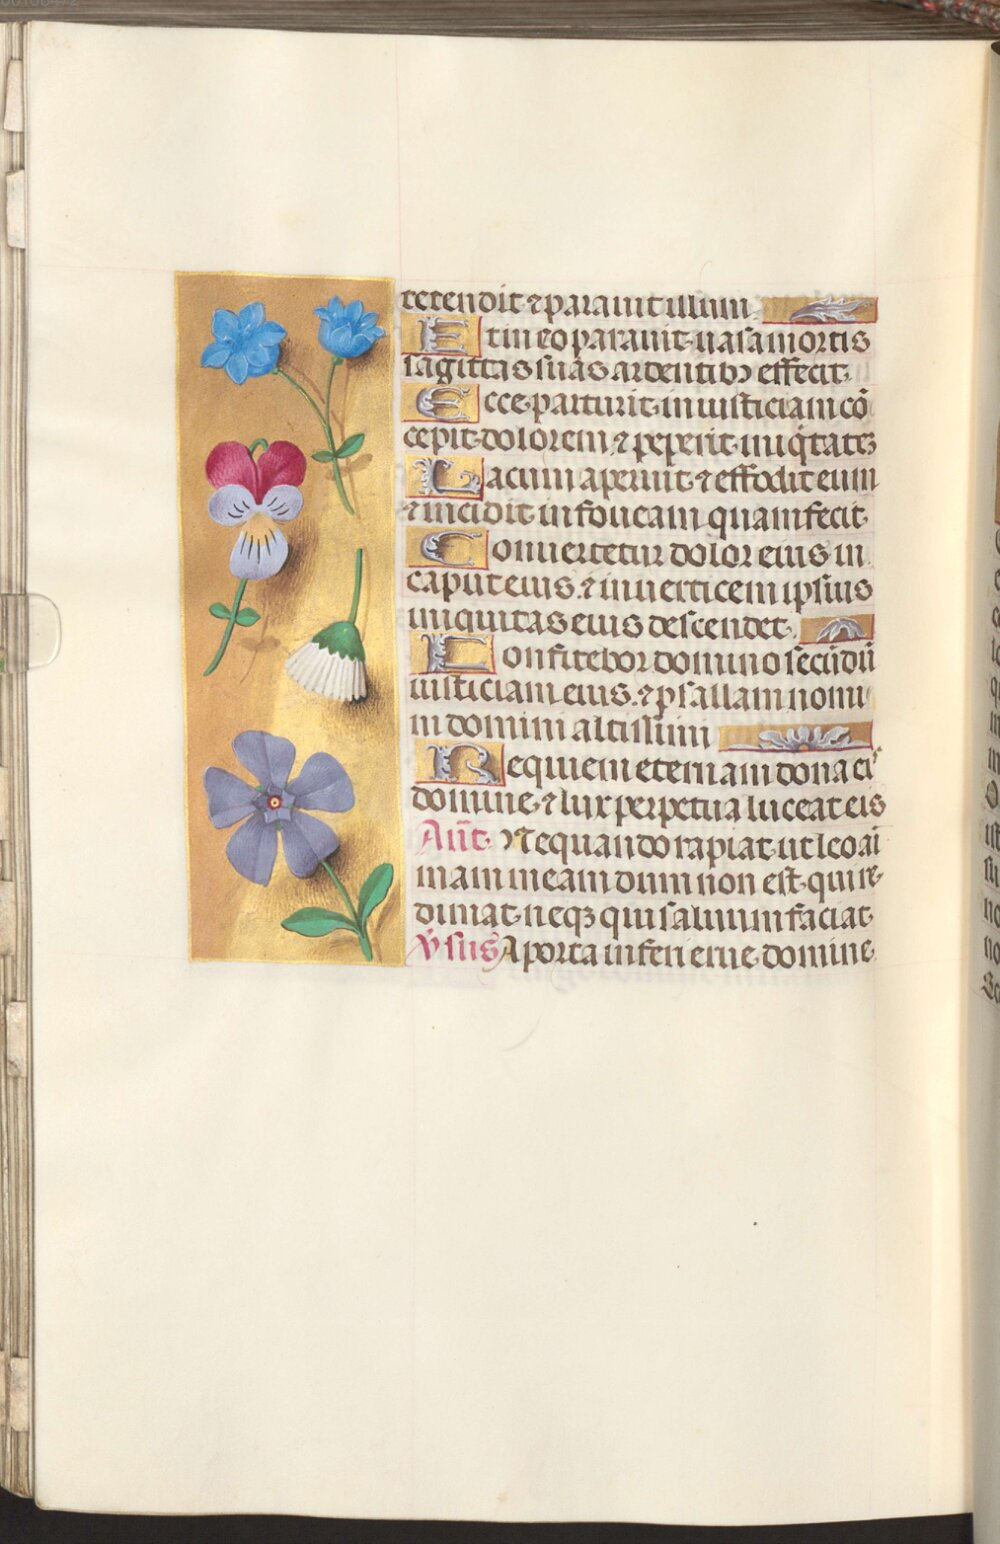 tetendit ⁊ parauit illum
Et in eo parauit uasa mortis
sagittas suas ardentibꝫ effecit
Ecce parturit iniusticiam cō
cepit dolorem ⁊ peperit iniq̄tatēꝫ
Lacum aperuit ⁊ effodit eum
⁊ incidit in foueam quam fecit
Conuertetur dolor eius in
caput eius ⁊ in uerticem ipsius
iniquitas eius descendet
Confitebor domino secūdū
iusticiam eius ⁊ psallam nomi
ni domini altissimi
Requiem eternam dona eiˢ
domine ⁊ lux perpetua luceat eis
Añt Nequando rapiat ut leo ai
mam meam dum non est qui re
dimat neqꝫ qui saluum faciat
V̾sus A porta inferi erue domine